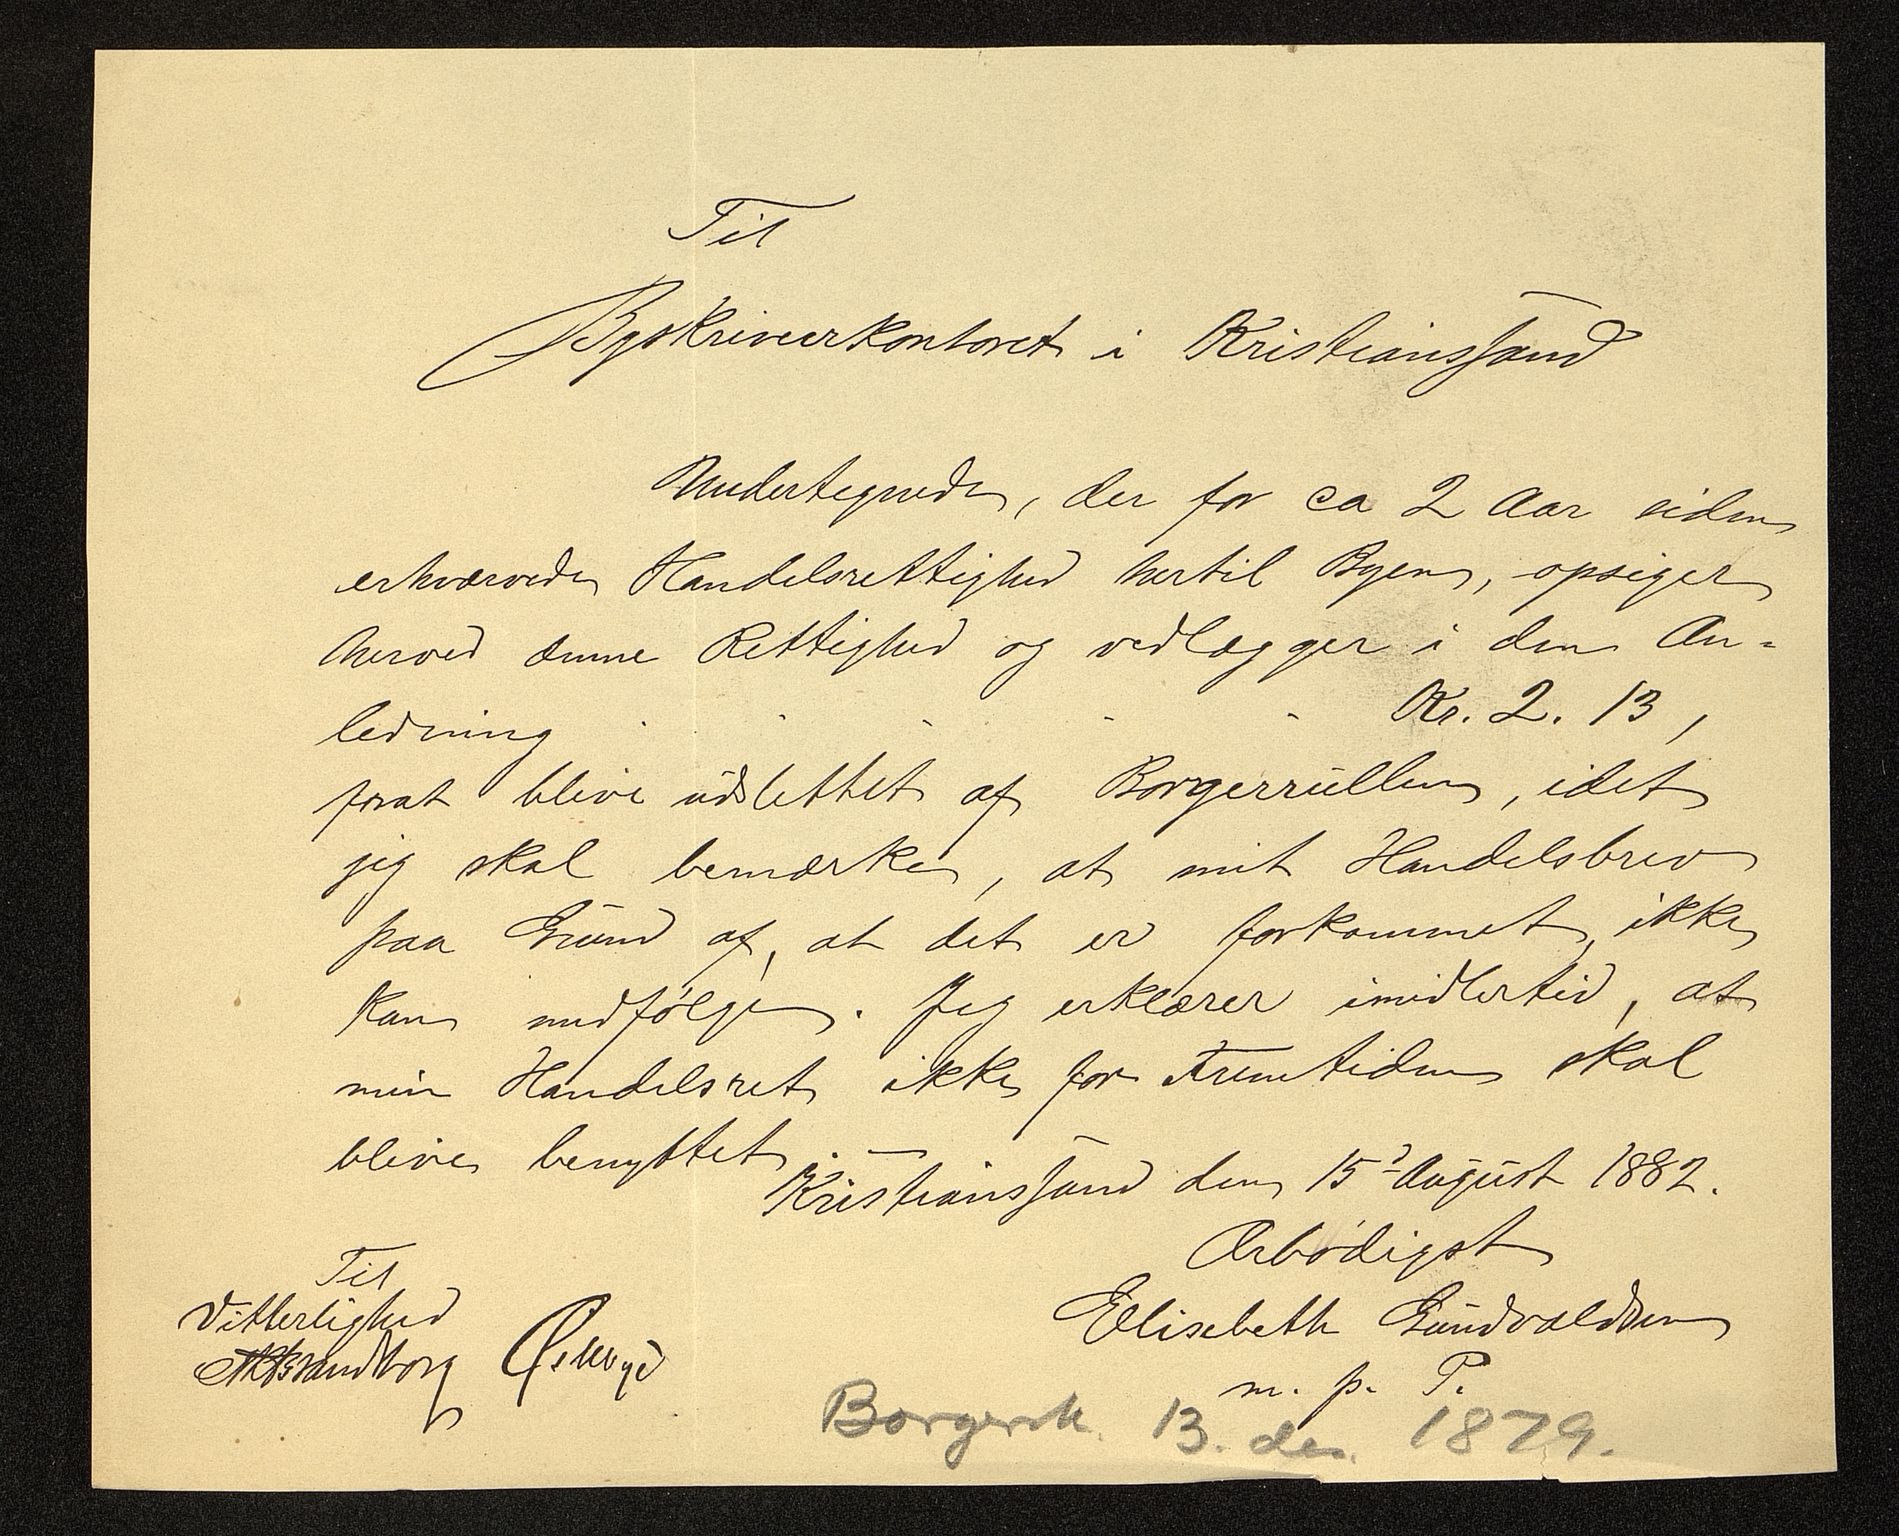 Til
Byskriverkontoret i Kristianssand
Undertegnede, der for ca 2 Aar siden
erhvervede Handelsrettighed hertil Byen, opsiger
herved denne Rettighed og vedlægger i den An-
ledning - - - - - Kr. 2. 13,
forat blive udslettet af Borgerrullen, idet
jeg skal bemærke, at mit Handelsbrev
paa Grund af, at det er forkommet, ikke
kan medfølge. Jeg erklærer imidlertid, at
min Handelsret ikke for Fremtiden skal
blive benyttet.
Kristianssand den 15de August 1882.
Ærbødigst
Elisebeth Gundvaldsen
m. p. P.
Til
Vitterlighed
Borgersk. 13. des. 1879.